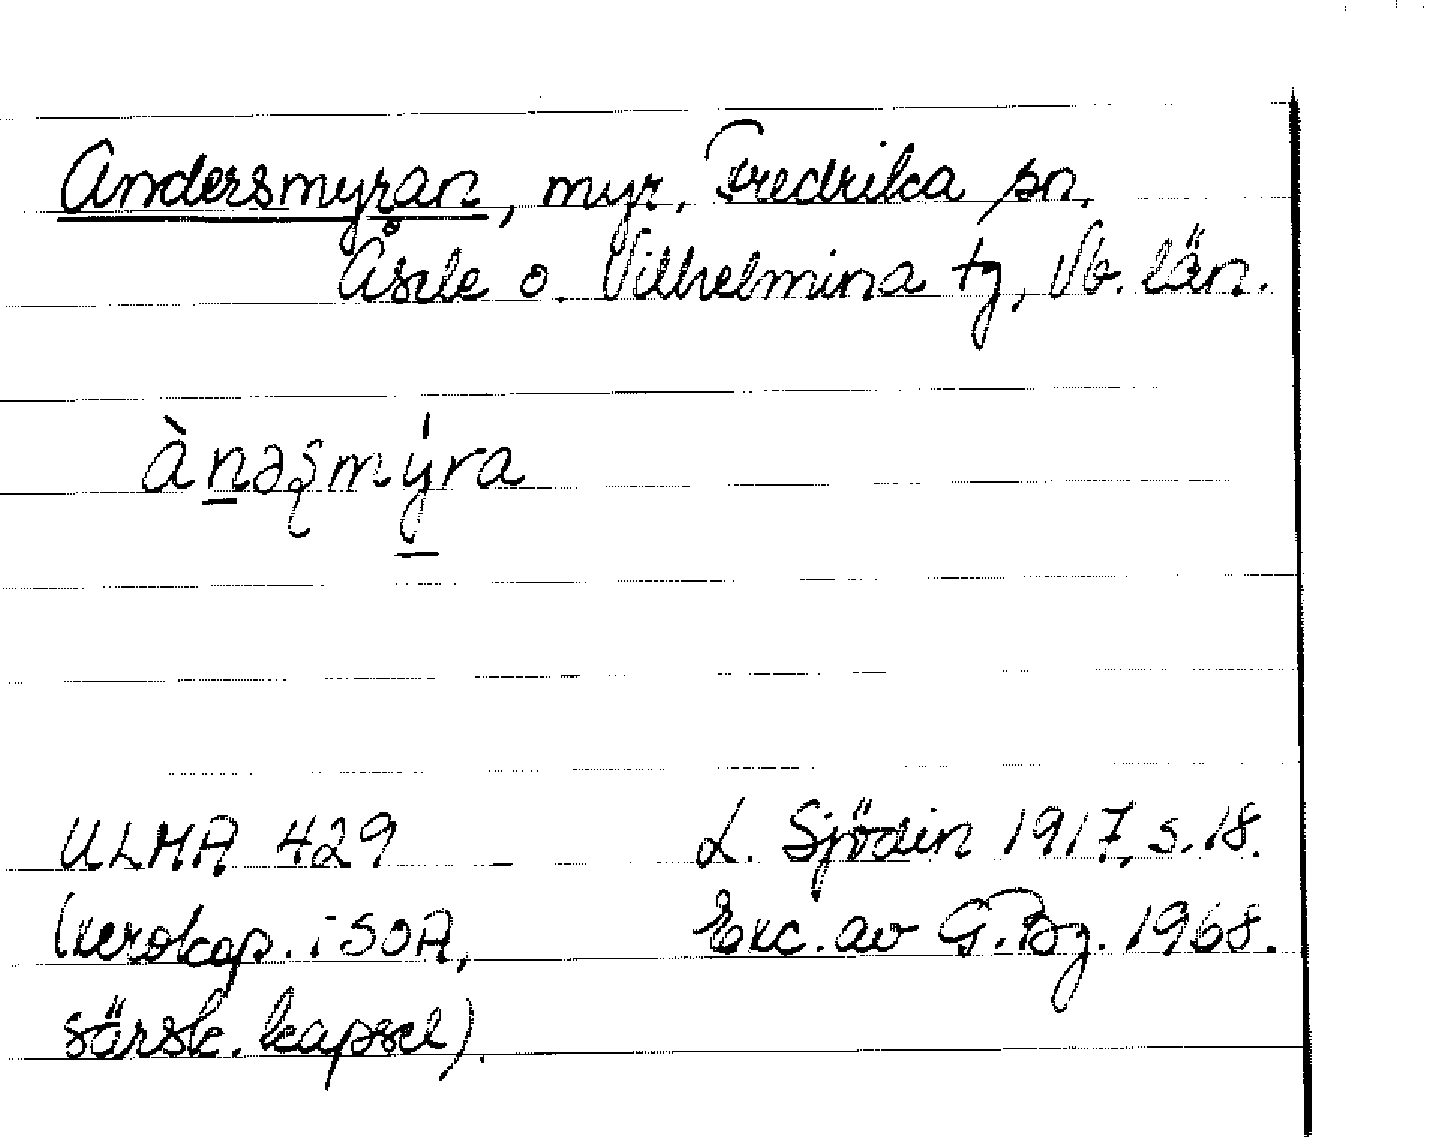 Andersmyran, myr, Fredrika sn,
Åsele o. Vilhelmina tg, Vb. län.
àn̲əʂmý̲ra
ULMA 429 L. Sjödin 1917, s. 18.
(xerokop. i SOA, Exc. av G. Bg. 1968.
särsk. kapsel).